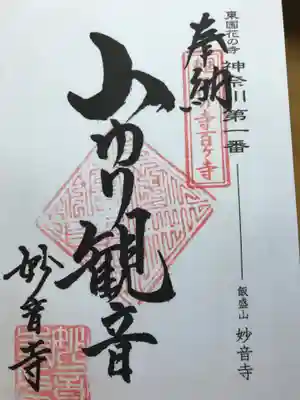 東国花の寺
神奈川 第一番
飯盛山 妙音寺
奉納
山ゆり観音
妙音寺